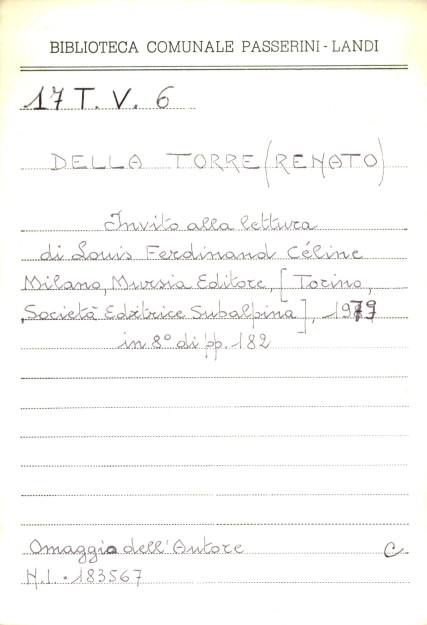 BIBLIOTECA COMUNALE PASSERINI - LANDI
17 T. V. 6
DELLA TORRE (RENATO)
Invito alla lettura
di Louis Ferdinand Céline
Milano, Mursia Editore, [Torino,
Società Editrice Subalpina], 1979
in 8° di pp. 182
Omaggio dell'Autore C
N.I. 183567